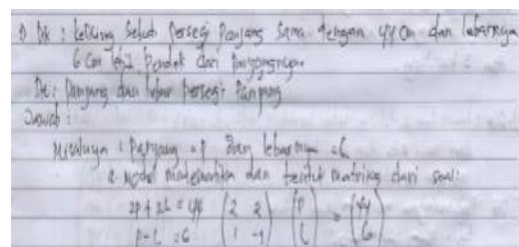 1) Dik : keliling Sebuah Persegi Panjang Sama dengan 44 cm dan lebarnya
6 cm lebih Pendek dari Panjangnya.
Dit : Panjang dan lebar Persegi Panjang
Jawab :
Misalnya : Panjang = P dan lebarnya = L
2 Model matematika dan bentuk matriks dari soal:
2P + 2L = 44 ( 2 2 ) ( P ) = ( 44 )
P - L = 6 ( 1 -1 ) ( L ) ( 6 )